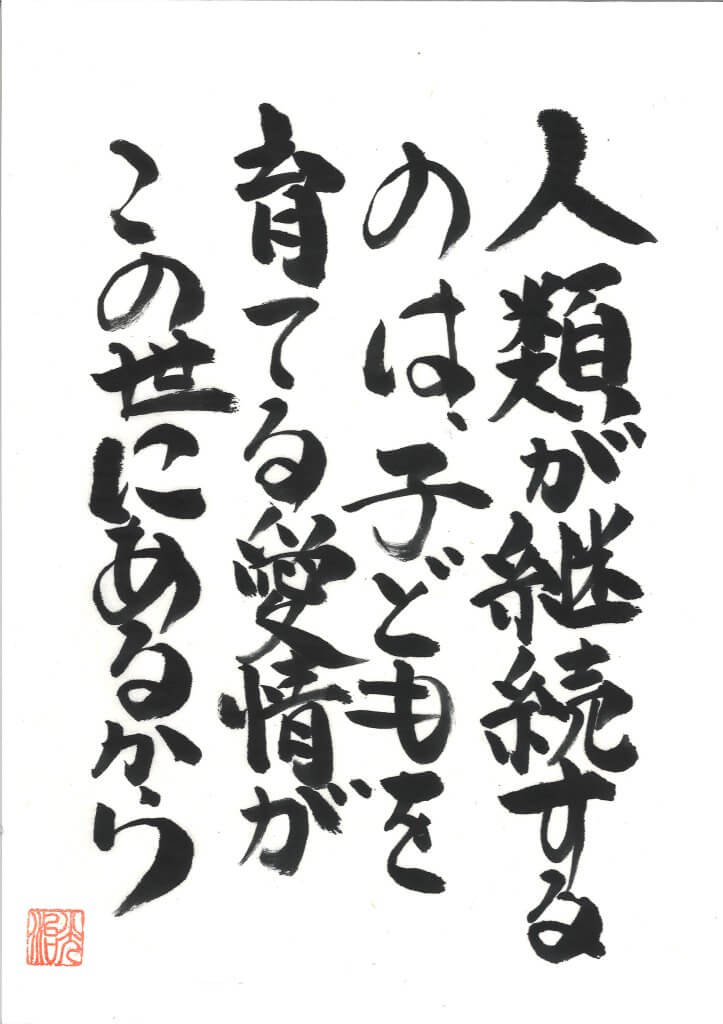 人類が継続する
のは、子どもを
育てる愛情が
この世にあるから